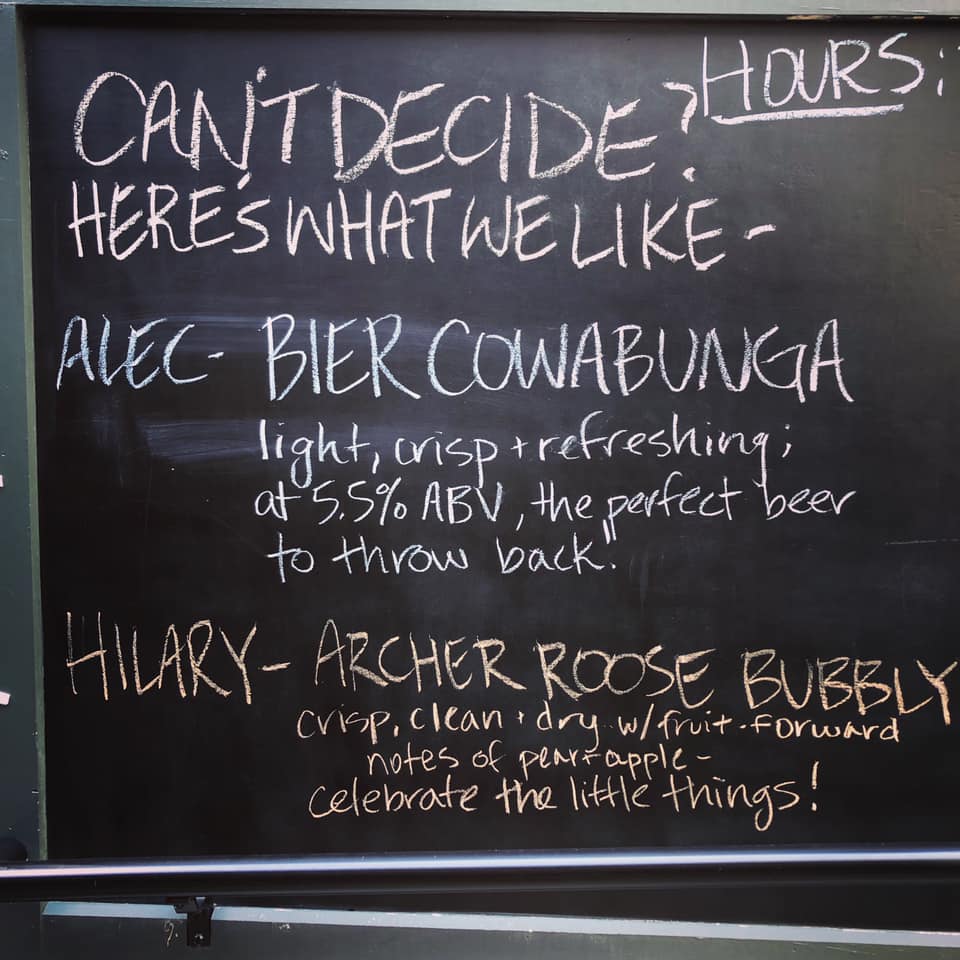 HOURS:
CAN'T DECIDE?
HERE'S WHAT WE LIKE -
ALEC - BIER COWABUNGA
light, crisp + refreshing;
at 5.5% ABV, the perfect beer
to throw back."
HILARY - ARCHER ROOSE BUBBLY
crisp, clean + dry w/ fruit-forward
notes of pear + apple -
celebrate the little things!